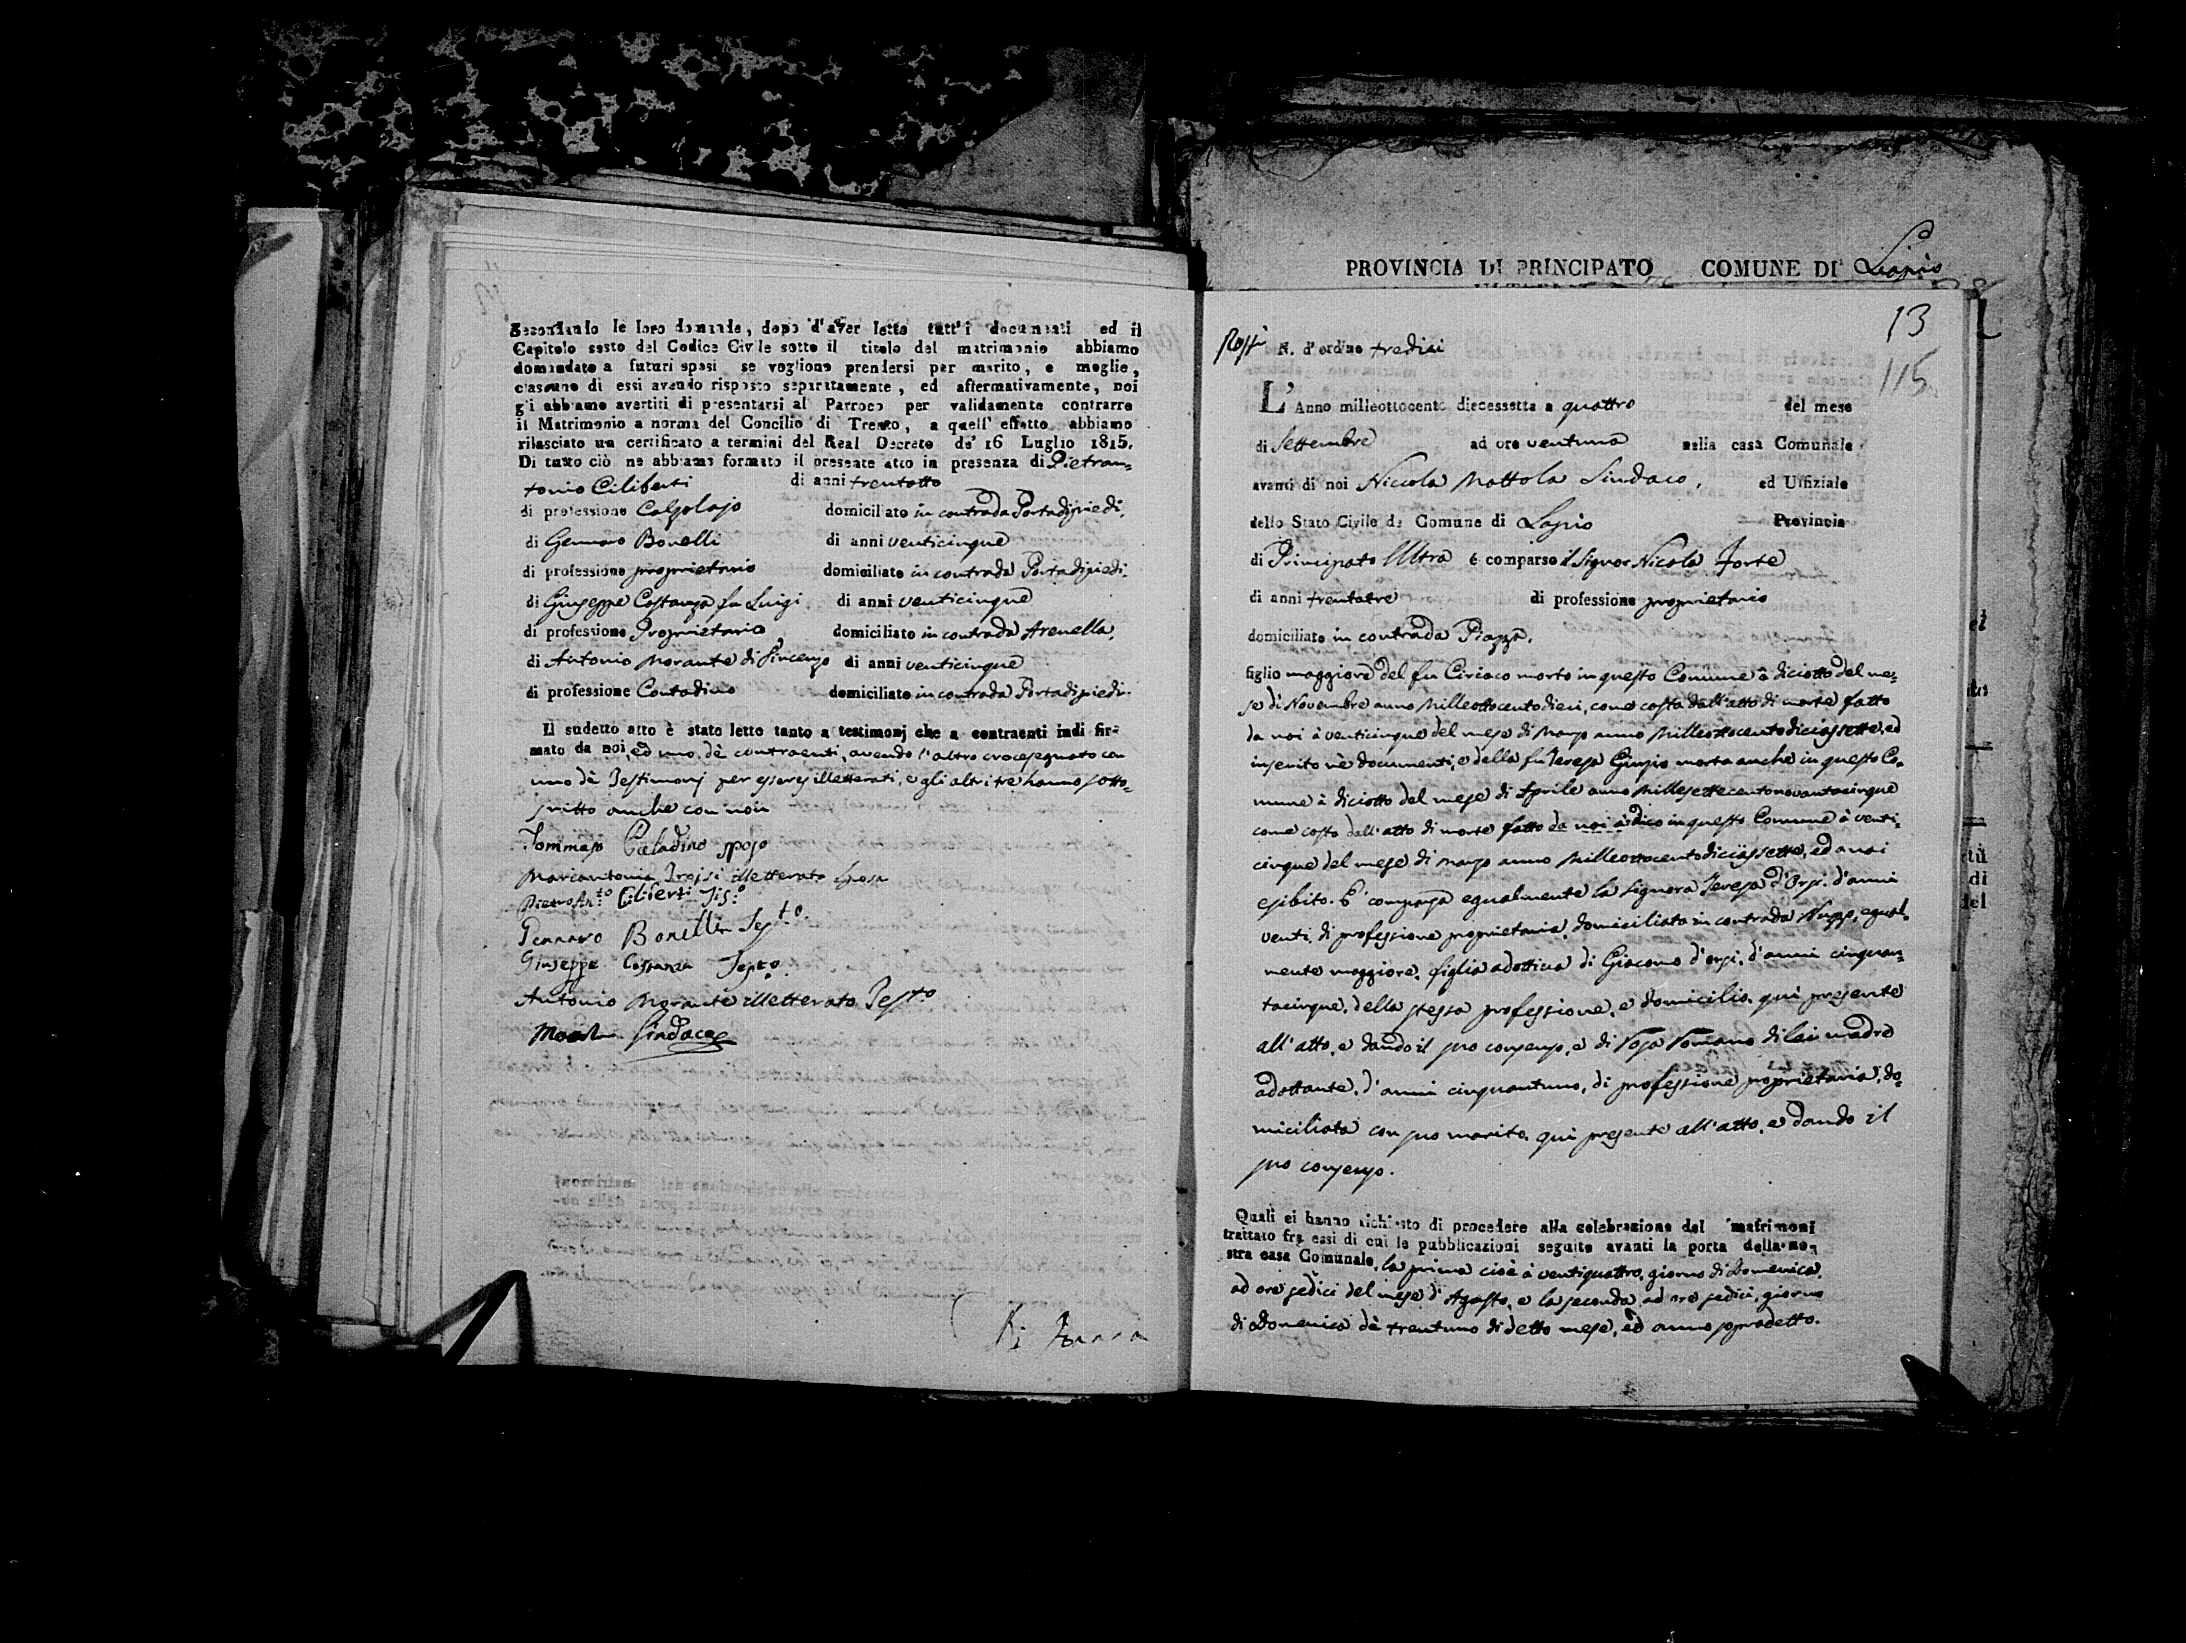 Secondando le loro domande, dopo d'aver letto tutt'i documenti ed il
Capitolo sesto del Codice Civile sotto il titolo del matrimonio abbiamo
domandato a futuri sposi se vogliono prendersi per marito, e moglie,
ciascuno di essi avendo risposto separatamente, ed affermativamente, noi
gli abbiamo avertiti di presentarsi al Parroco per validamente contrarre
il Matrimonio a norma del Concilio di Trento, a quell' effetto abbiamo
rilasciato un certificato a termini del Real Decreto de' 16 Luglio 1815.
Di tutto ciò ne abbiamo formato il presente atto in presenza di Pietran=
tonio Ciliberti di anni trentotto
di professione Calzolajo domiciliato in contrada Portadipiedi,
di Gennaro Bonelli di anni venticinque
di professione proprietario domiciliato in contrada Portadipiedi.
di Giuseppe Costanza fu Luigi di anni venticinque
di professione Proprietario domiciliato in contrada Arenella,
di Antonio Morante di Vincenzo di anni venticinque
di professione Contadino domiciliato in contrada Portadipiedi.
Il sudetto atto è stato letto tanto a testimonj che a contraenti indi fir-
mato da noi, ed uno dè contraenti, avendo l'altro crocesegnato con
uno dè Testimonj per essersi illetterati, e gli altri tre hanno sotto=
scritto anche con noi
Tommaso Caladino sposo
Mariantonia Troisi illetterata sposa
Pietro An:to Ciliberti Tis:o
Gennaro Bonelli Testo.
Giuseppe Costanza Testo.
Antonio Morante illetterato Testo
Sindaco
PROVINCIA DI PRINCIPATO COMUNE DI Lapio
13
115
N. d'ordine tredici
L'Anno milleottocento diecessette a quattro del mese
di Settembre ad ore ventuna nella casa Comunale
avanti di noi Niccola Mottola Sindaco, ed Uffiziale
dello Stato Civile de Comune di Lapio Provincia
di Principato Ultra è comparso il Signor Nicola Forte
di anni trentatre di professione proprietario
domiciliato in contrada Piazza,
figlio maggiore del fu Ciriaco morto in questo Comune à diciotto del me=
se di Novembre anno Milleottocentodieci, come costa dall'atto di morte fatto
da noi à venticinque del mese di Marzo anno Milleottocentodiciassette, ed
inserito nè documenti, e della fu Teresa morta anche in questo Co=
mune à diciotto del mese di Aprile anno Millesettecentonovantacinque
come costa dall'atto di morte fatto da noi à dico in questo Comune à venti=
cinque del mese di Marzo anno Milleottocentodiciassette, ed a noi
esibito. E' comparsa egualmente la Signora Teresa d'Orsi, d'anni
venti, di professione proprietaria, domiciliata in contrada egual=
mente maggiore, figlia adottiva di Giacomo d'orsi, d'anni cinquan=
tacinque, della stessa professione, e domicilio, quì presente
all'atto, e dando il suo consenso, e di Rosa Romano di lei madre
adottante, d'anni cinquantuno, di professione proprietaria, do=
miciliata con suo marito, quì presente all'atto, e dando il
suo consenso.
Quali ci hanno richiesto di procedere alla celebrazione del matrimoni
trattato fra essi di cui le pubblicazioni seguite avanti la porta della no-
stra casa Comunale, la prima cioè à ventiquattro, giorno di Domenica,
ad ore sedici del mese di Agosto, e la seconda ad ore sedici, giorno
di Domenica dè trentuno di detto mese, ed anno sopradetto.